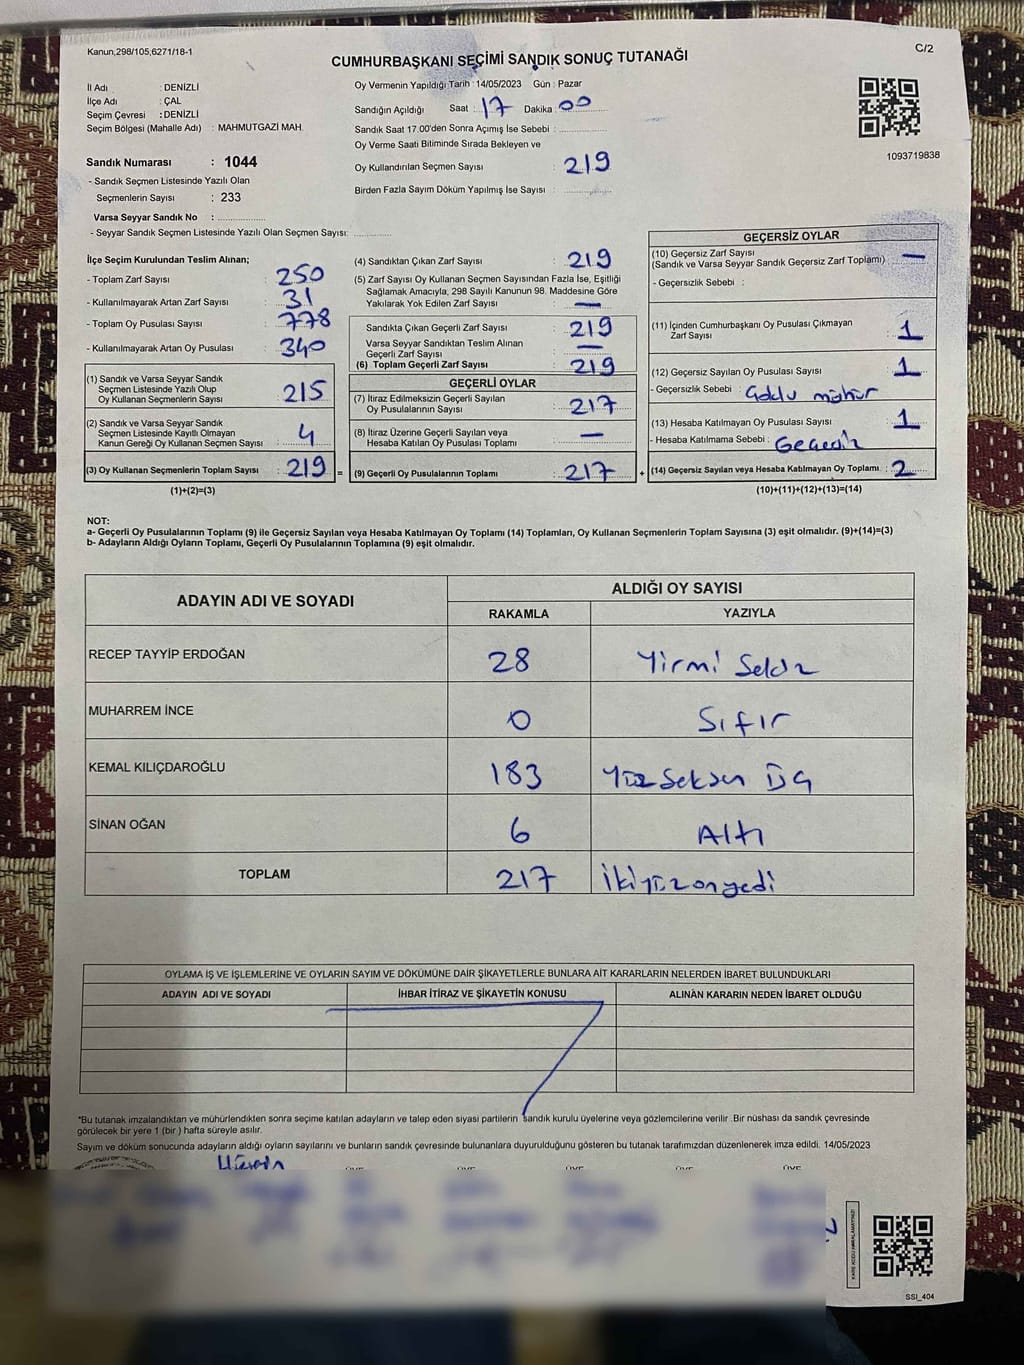 Kanun,298/105,6271/18-1
C/2
CUMHURBAŞKANI SEÇİMİ SANDIK SONUÇ TUTANAĞI
İl Adı : DENİZLİ
İlçe Adı : ÇAL
Seçim Çevresi : DENİZLİ
Seçim Bölgesi (Mahalle Adı) : MAHMUTGAZİ MAH.
Sandık Numarası : 1044
- Sandık Seçmen Listesinde Yazılı Olan
Seçmenlerin Sayısı : 233
Varsa Seyyar Sandık No : ................
- Seyyar Sandık Seçmen Listesinde Yazılı Olan Seçmen Sayısı: ............
Oy Vermenin Yapıldığı Tarih : 14/05/2023 Gün : Pazar
Sandığın Açıldığı Saat : 17 Dakika : 00
Sandık Saat 17.00'den Sonra Açımış İse Sebebi : ................
Oy Verme Saati Bitiminde Sırada Bekleyen ve
Oy Kullandırılan Seçmen Sayısı : 219
Birden Fazla Sayım Döküm Yapılmış İse Sayısı : ................
1093719838
İlçe Seçim Kurulundan Teslim Alınan;
- Toplam Zarf Sayısı : 250
- Kullanılmayarak Artan Zarf Sayısı : 31
- Toplam Oy Pusulası Sayısı : 778
- Kullanılmayarak Artan Oy Pusulası : 340
(1) Sandık ve Varsa Seyyar Sandık
Seçmen Listesinde Yazılı Olup
Oy Kullanan Seçmenlerin Sayısı : 215
(2) Sandık ve Varsa Seyyar Sandık
Seçmen Listesinde Kayıtlı Olmayan
Kanun Gereği Oy Kullanan Seçmen Sayısı : 4
(3) Oy Kullanan Seçmenlerin Toplam Sayısı : 219 =
(1)+(2)=(3)
(4) Sandıktan Çıkan Zarf Sayısı : 219
(5) Zarf Sayısı Oy Kullanan Seçmen Sayısından Fazla İse, Eşitliği
Sağlamak Amacıyla, 298 Sayılı Kanunun 98. Maddesine Göre
Yakılarak Yok Edilen Zarf Sayısı : —
Sandıkta Çıkan Geçerli Zarf Sayısı : 219
Varsa Seyyar Sandıktan Teslim Alınan
Geçerli Zarf Sayısı : —
(6) Toplam Geçerli Zarf Sayısı : 219
GEÇERLİ OYLAR
(7) İtiraz Edilmeksizin Geçerli Sayılan
Oy Pusulalarının Sayısı : 217
(8) İtiraz Üzerine Geçerli Sayılan veya
Hesaba Katılan Oy Pusulası Toplamı : —
(9) Geçerli Oy Pusulalarının Toplamı : 217 +
GEÇERSİZ OYLAR
(10) Geçersiz Zarf Sayısı
(Sandık ve Varsa Seyyar Sandık Geçersiz Zarf Toplamı) : —
- Geçersizlik Sebebi :
(11) İçinden Cumhurbaşkanı Oy Pusulası Çıkmayan
Zarf Sayısı : 1
(12) Geçersiz Sayılan Oy Pusulası Sayısı : 1
- Geçersizlik Sebebi : mühür
(13) Hesaba Katılmayan Oy Pusulası Sayısı : 1
- Hesaba Katılmama Sebebi : Geçersiz
(14) Geçersiz Sayılan veya Hesaba Katılmayan Oy Toplamı : 2
(10)+(11)+(12)+(13)=(14)
NOT:
a- Geçerli Oy Pusulalarının Toplamı (9) ile Geçersiz Sayılan veya Hesaba Katılmayan Oy Toplamı (14) Toplamları, Oy Kullanan Seçmenlerin Toplam Sayısına (3) eşit olmalıdır. (9)+(14)=(3)
b- Adayların Aldığı Oyların Toplamı, Geçerli Oy Pusulalarının Toplamına (9) eşit olmalıdır.
ADAYIN ADI VE SOYADI
ALDIĞI OY SAYISI
RAKAMLA YAZIYLA
RECEP TAYYİP ERDOĞAN 28 Yirmi Sekiz
MUHARREM İNCE 0 Sıfır
KEMAL KILIÇDAROĞLU 183 Yüz Seksen Üç
SİNAN OĞAN 6 Altı
TOPLAM 217 İkiyüzonyedi
OYLAMA İŞ VE İŞLEMLERİNE VE OYLARIN SAYIM VE DÖKÜMÜNE DAİR ŞİKAYETLERLE BUNLARA AİT KARARLARIN NELERDEN İBARET BULUNDUKLARI
ADAYIN ADI VE SOYADI İHBAR İTİRAZ VE ŞİKAYETİN KONUSU ALINAN KARARIN NEDEN İBARET OLDUĞU
*Bu tutanak imzalandıktan ve mühürlendikten sonra seçime katılan adayların ve talep eden siyasi partilerin sandık kurulu üyelerine veya gözlemcilerine verilir .Bir nüshası da sandık çevresinde
görülecek bir yere 1 (bir ) hafta süreyle asılır.
Sayım ve döküm sonucunda adayların aldığı oyların sayılarını ve bunların sandık çevresinde bulunanlara duyurulduğunu gösteren bu tutanak tarafımızdan düzenlenerek imza edildi. 14/05/2023
ÜYE ÜYE ÜYE ÜYE ÜYE
SSİ_404